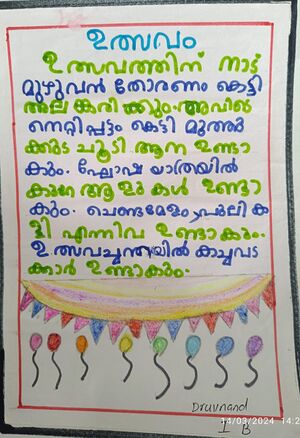 ഉത്സവം
ഉത്സവത്തിന് നാട്
മുഴുവൻ തോരണം കെട്ടി
അലങ്കരിക്കും. അവിൽ
നെറ്റിപ്പട്ടം കെട്ടി മുത്തു
ക്കുട ചൂടി ആന ഉണ്ടാ
കും. ഘോഷയാത്രയിൽ
കുറേ ആളുകൾ ഉണ്ടാ
കും. ചെണ്ടമേളം, പുലിക
ളി എന്നിവ ഉണ്ടാകും.
ഉത്സവച്ചന്തയിൽ കച്ചവട
ക്കാർ ഉണ്ടാകും.
Druvnand
I B
14/03/2024 14:2